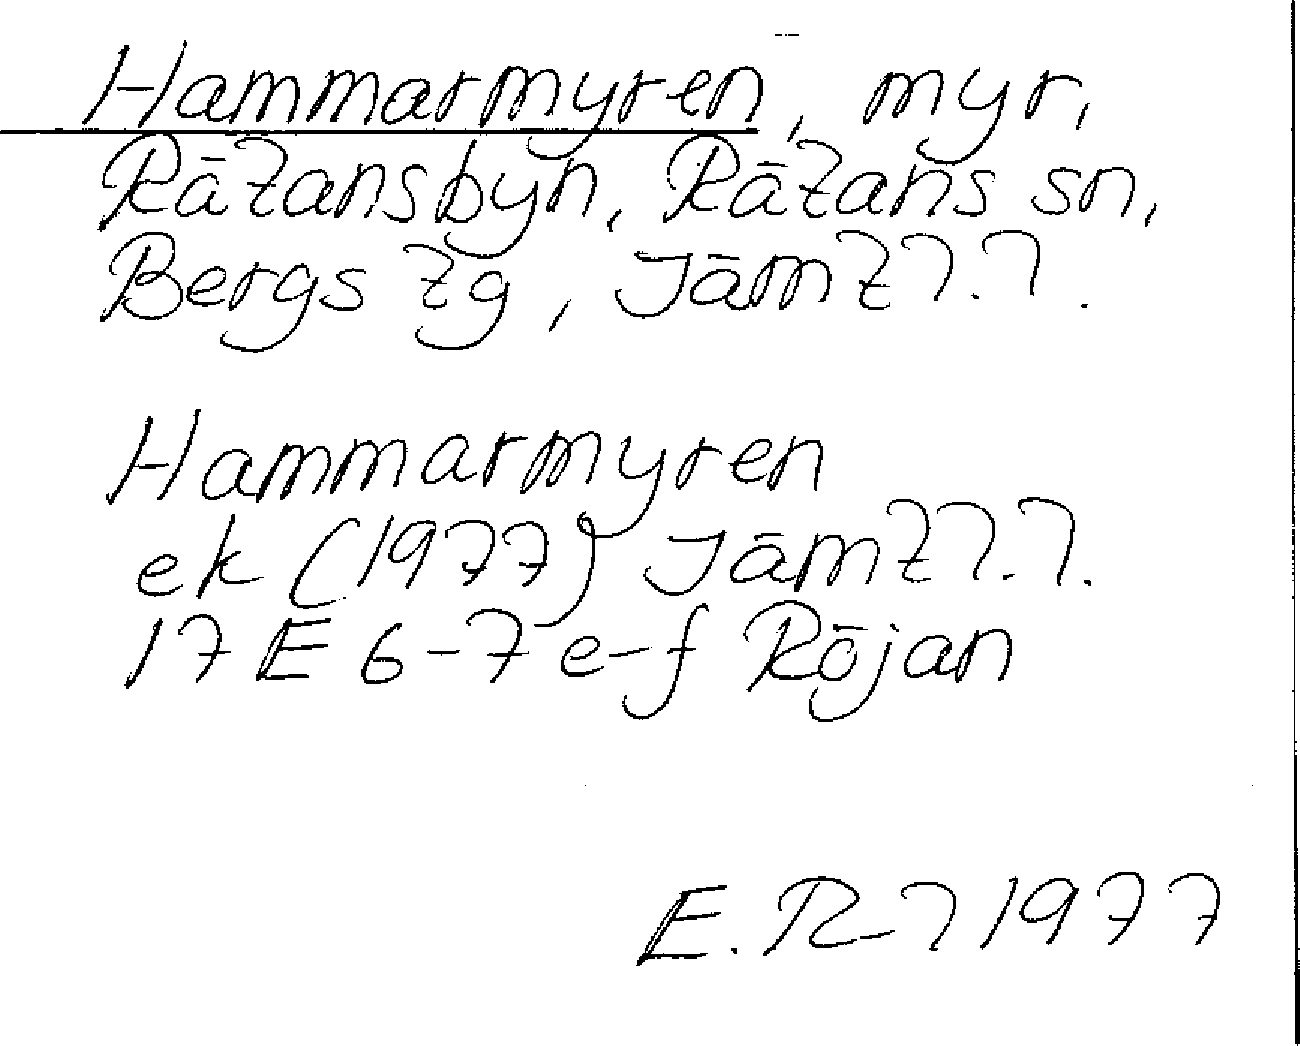 Hammarmyren, myr,
Rätansbyn, Rätans sn,
Bergs tg, Jämtl.l.
Hammarmyren
ek (1977) Jämtl.l.
17 E 6-7 e-f Röjan
E.R-l 1977